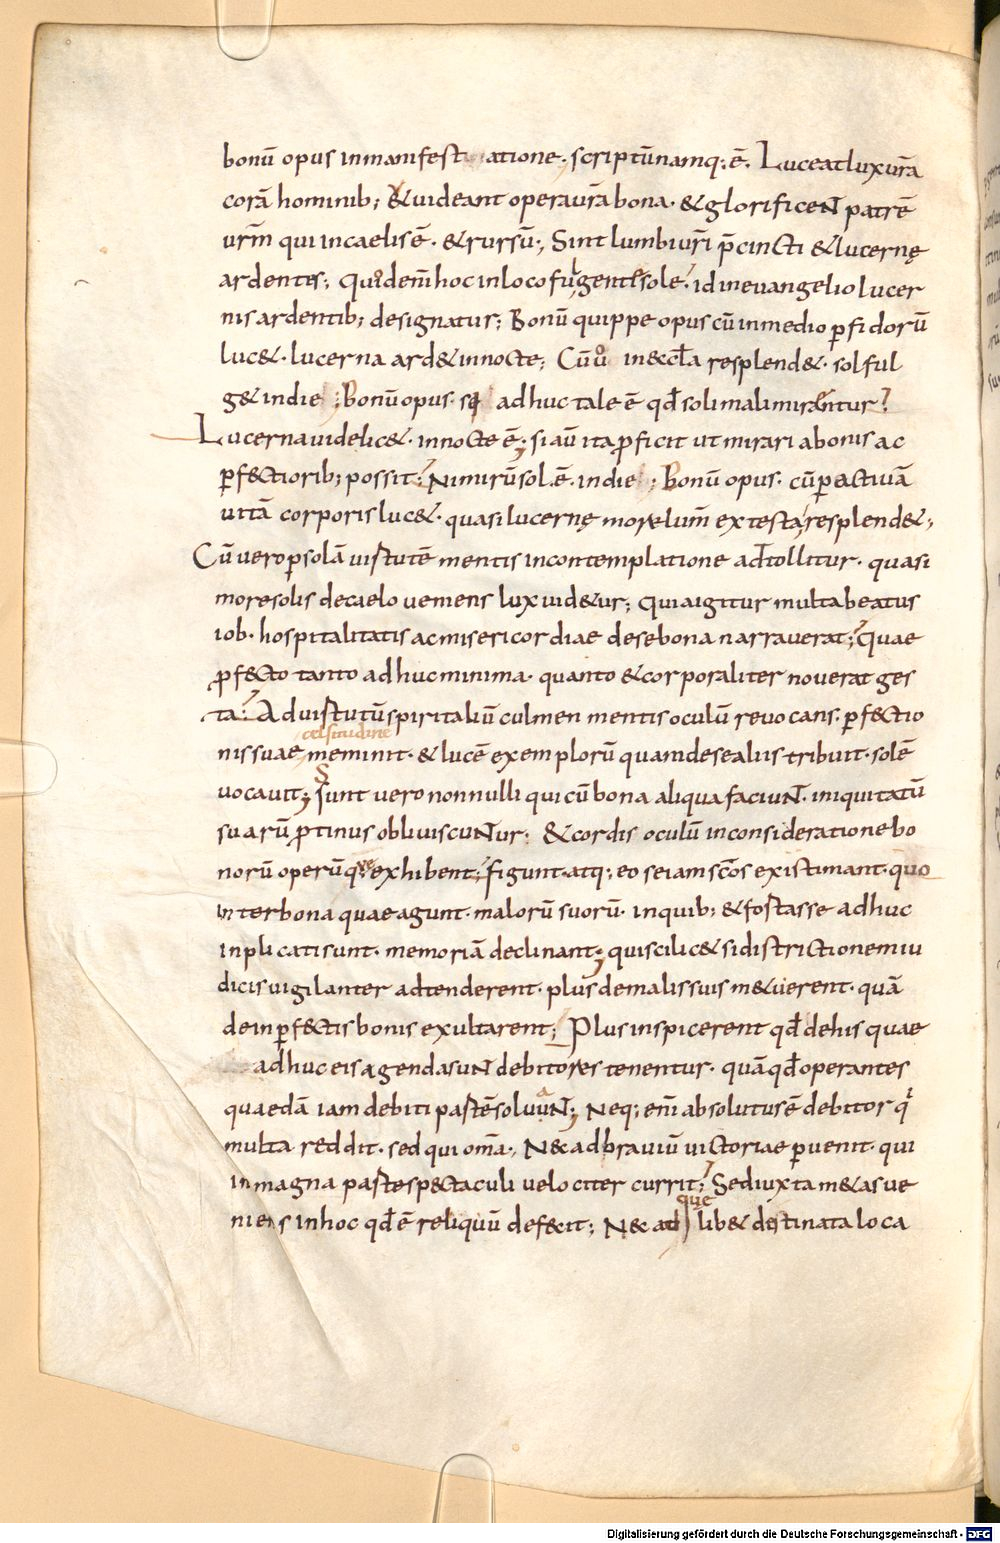 bonū opus inmanifest atione · scriptū namq; ē. Luceat lux vrā
corā hominib; & uideant opera vrā bona · & glorificent patrē
urm̄ qui in caelis ē · & rursū; Sint lumbi uri p̄cincti & lucernę
ardentes; Quidem̄ hoc in loco fulgentē sole · id in euangelio lucer
nis ardentib; designatur; Bonū quippe opus cū in medio ꝑfidorū
luc& · lucerna ard& in nocte; Cū ů in eccła resplend& · sol ful
g& in die; Bonū opus · adhuc tale ē qd̄ soli mali mirentur?
Lucerna uidelic& · in nocte ē; si aū ita ꝓficit ut mirari a bonis ac
ꝑf&ctiorib; possit; Nimirū sol ē · in die; Bonū opus · cū ꝑ actiuā
uitā corporis luc& · quasi lucernę more lum̄ ex testa resplend&;
Cū vero ꝑ solā uirtutē mentis in contemplatione adtollitur · quasi
more solis de caelo ueniens lux uid&ur; Quia igitur multa beatus
iob · hospitalitatis ac misericordiae de se bona narrauerat; quae
ꝓf&cto tanto adhuc minima · quanto & corporaliter nouerat ges
ta; Ad uirtutū spiritaliū culmen mentis oculū reuocans · ꝑf&ctio
celsitudine
nis suae meminit · & lucē exemplorū quam de se aliis tribuit · solē
uocauit; Sunt vero nonnulli qui cū bona aliqua faciunt · iniquitatū
suarū ꝓtinus obliuiscuntur; & cordis oculū in consideratione bo
norū operū quę exhibent; figunt · atq; eo se iam sc̄os existimant · quo
inter bona quae agunt · malorū suorū · in quib; & fortasse adhuc
inplicati sunt · memoriā declinant; qui scilic& si districtionem iu
dicis uigilanter adtenderent · plus de malis suis m&uerent · quā
de inꝑf&ctis bonis exultarent; Plus inspicerent qd̄ de his quae
adhuc eis agenda sunt debitores tenentur · quā qd̄ operantes
quaedā iam debiti partē soluunt; Neq; eni absolutus ē debitor q
multa reddit · sed qui om̄a; N& ad brauiū uictoriae ꝑuenit · qui
in magna parte spectaculi uelociter currit; Sed iuxta m&as ue
niens in hoc qd̄ ē reliquū defecit; N& ad que lib& destinata loca
Digitalisierung gefördert durch die Deutsche Forschungsgemeinschaft - DFG